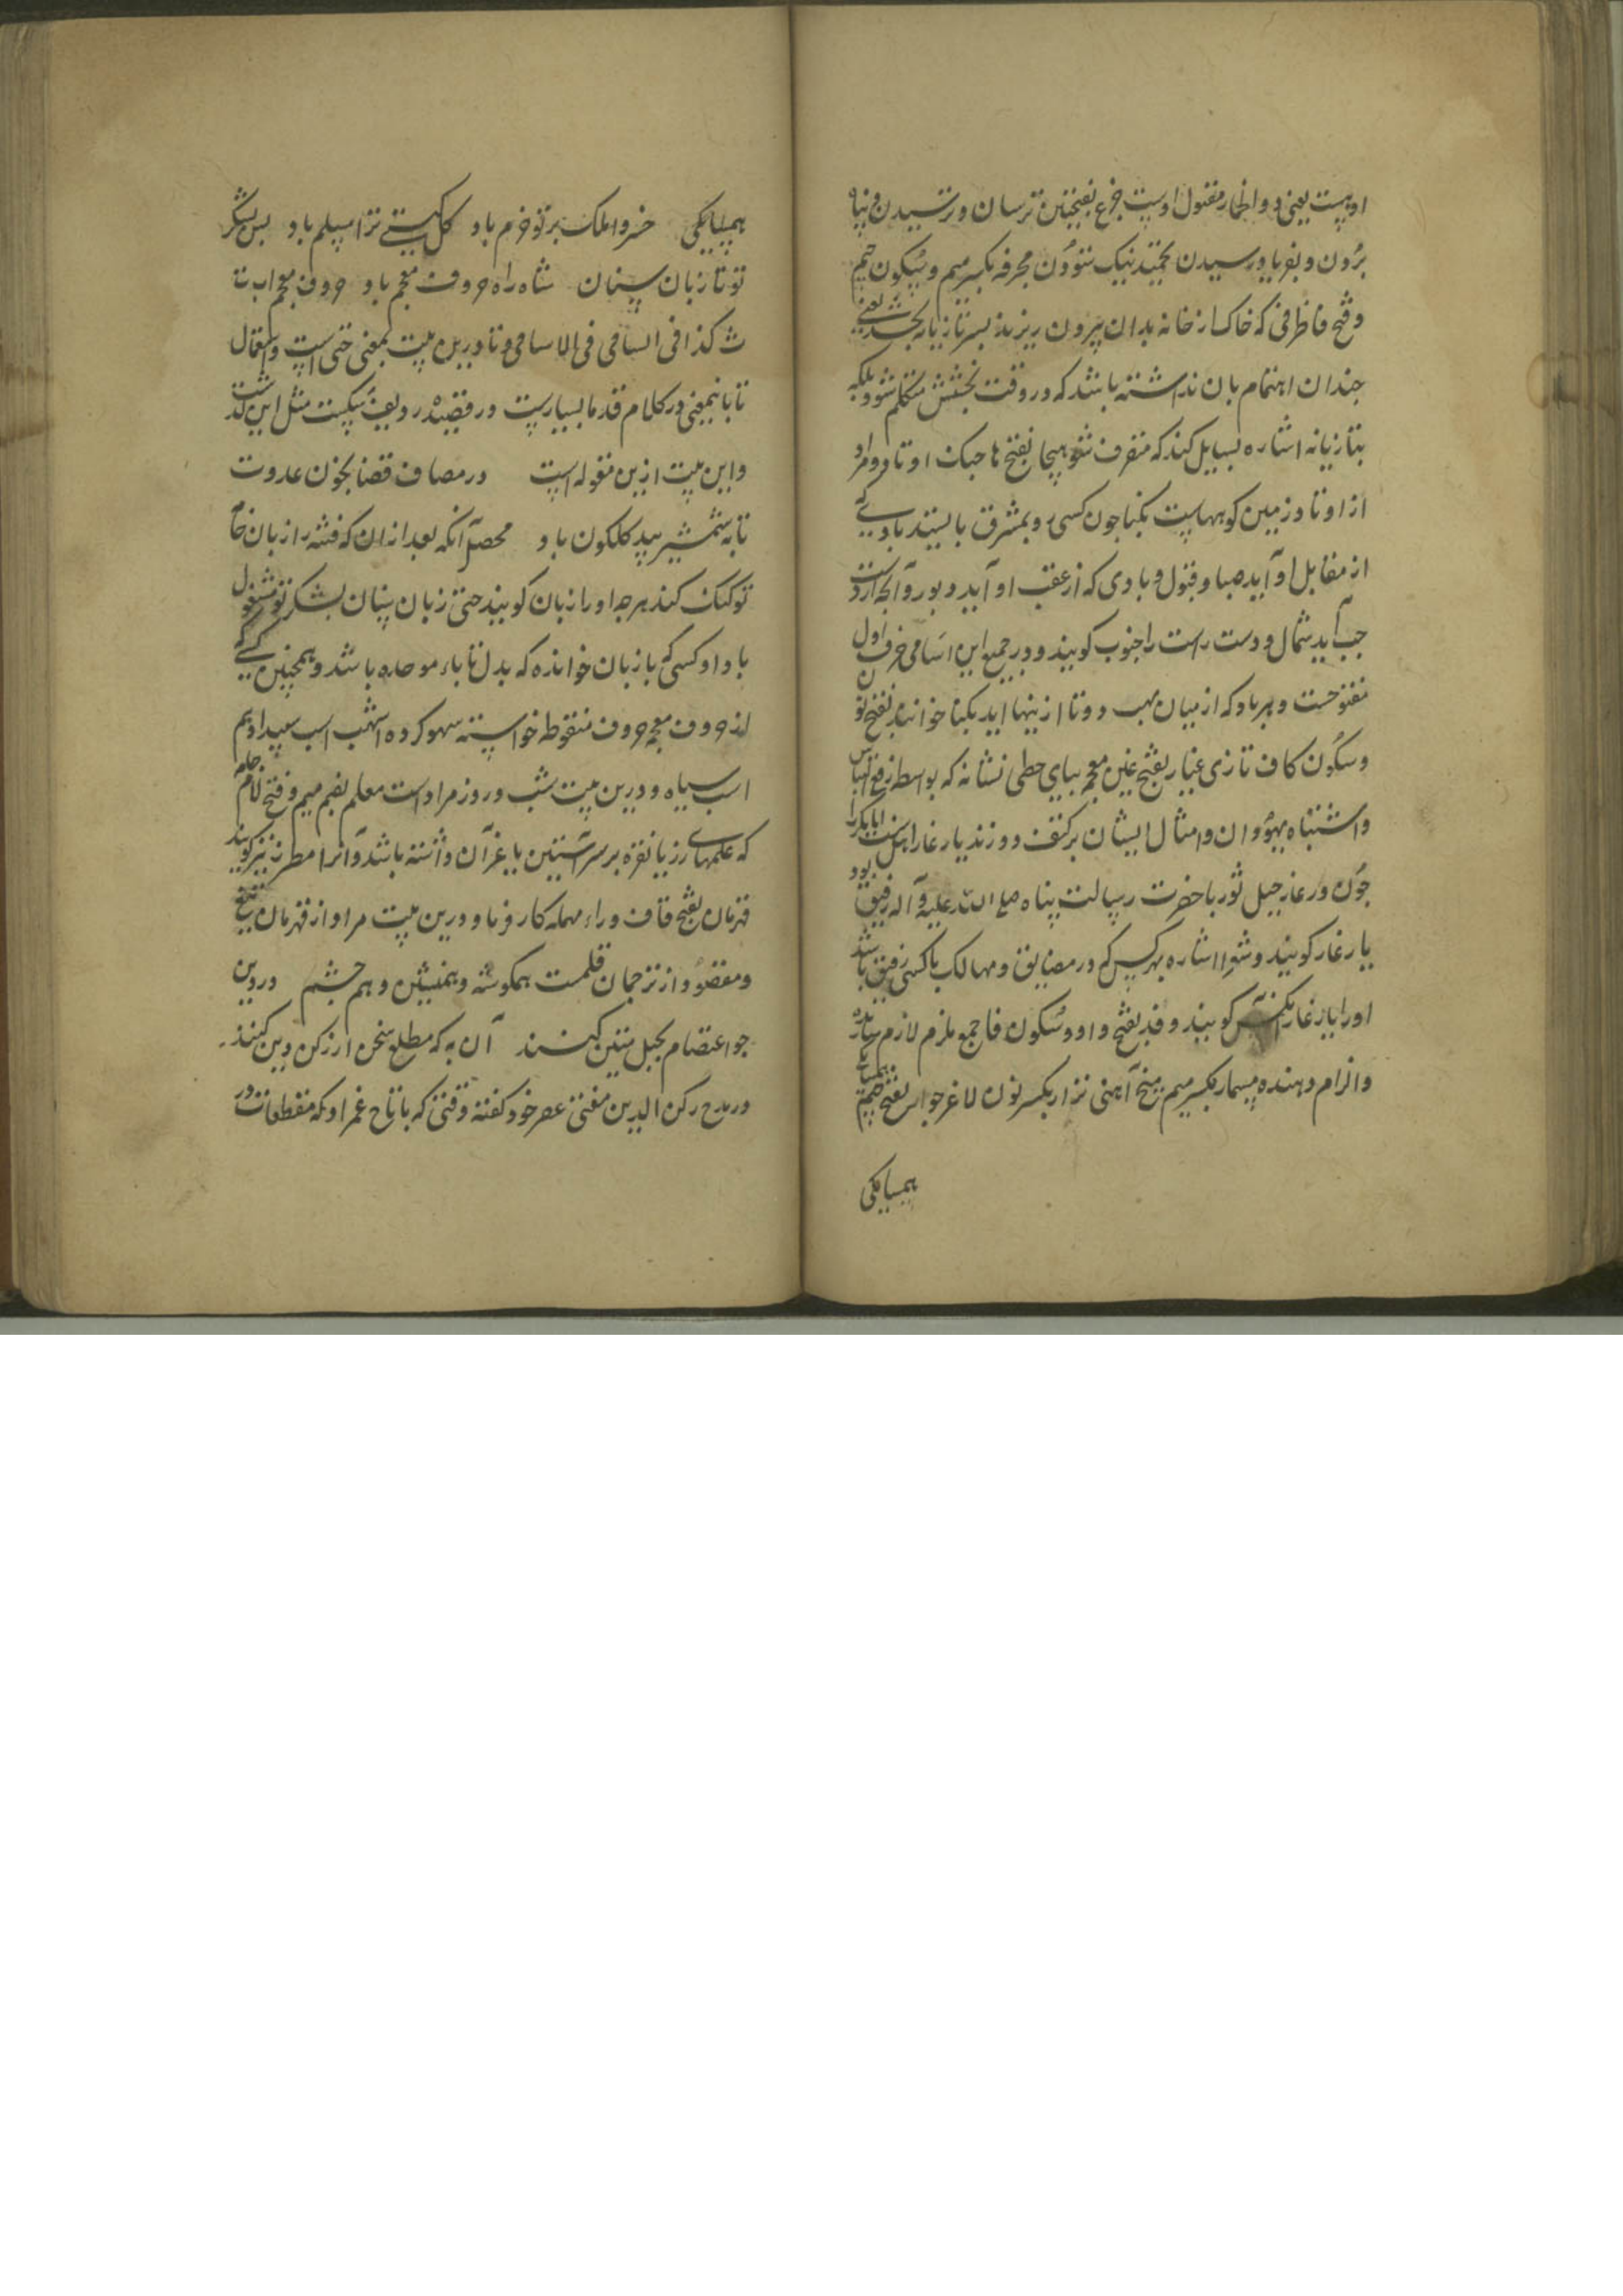 او هست یعنی دو اظهار مفتول اوست جزع بفتحتین ترسان و ترسیدن و پناه
بردن و بفریاد رسیدن تحمید نیک ستودن مجرفه بکسر میم و سکون جیم
و فتح فا ظرفی که خاک از خانه بدان بیرون ریزند بسر تازیانه بخشد یعنی
چندان اهتمام بان نداشته باشد که در وقت بخشش متکلم شود بلکه
بتازیانه اشاره بسایل کند که متصرف شو هیجا بفتح ها جنک اوتاد و مراد
از اوتاد زمین کوههاست نکبا جون کسی رو بمشرق بایستد بادی که
از مقابل او آید صبا و قبول و بادی که از عقب او آید دبور و آنچه از دست
جب آید شمال و دست راست را جنوب کویند و در جمیع این اسامی حرف اول
مفتوحست و هر باد که از میان مهب دوتا از ینها اید نکبا خوانند بفتح نون
و سکون کاف تازی غیار بفتح غین معجمه بیای حطی نشانه که بواسطه رفع التباس
و اشتباه یهودان و امثال ایشان بر کتف دوزند یار غار اهل سنت ابابکر را
چون در غار جبل ثور با حضرت رسالت پناه صلی الله علیه و آله رفیق بود
یار غار کویند و شعرا اشاره بهر کس که در مضایق و مهالک با کسی رفیق باشد
اورا یار غار کویند وفد بفتح واو و سکون فا جمع ملزم لازم سازنده
و الزام دهنده مسمار بکسر میم میخ آهنی نزار بکسر نون لاغر جواس بفتح جیم همسایکی
همسایکی
همسایکی خسروا ملک بر تو خرم باد کل کیتی ترا مسلم باد بس بشکر
تو تا زبان سنان شاه راه حروف معجم باد حروف معجم اب ت
ث کذا فی السامی فی الاسامی و تا درین بیت بمعنی حتی است و استعمال
تا باینمعنی در کلام قدما بسیارست در قصیده ردیف نیکست مثل این گذشت
و این بیت ازین مقوله است در مصاف قضا بخون عدوت
تا به شمشیر بید کلکون باد محصل آنکه بعد ازان که فتنه را زبان خامه
تو کنک کند هر چه اورا زبان کویند حتی زبان سنان بشکر تو مشغول
باد و کسی که با زبان خوانده که بدل تا باء موحده باشد و همچنین کسی که
از حروف معجم حروف منقوطه خواسته سهو کرده اشهب اسب سپید ادهم
اسب سیاه و درین بیت شب و روز مراد است معلم بضم میم و فتح لام جامه
که علمهای زر یا نقره بر سر آستین یا غیر آن داشته باشد و آنرا مطرز نیز کویند
قهرمان بفتح قاف و راء مهمله کار فرما و درین بیت مراد از قهرمان تیغ
و مقصود از ترجمان قلمت همکوشه و همنشین و هم چشم در دین
جو اعتصام بحبل متین کنند آن به که مطلع سخن از رکن دین کنند
در مدح رکن الدین مفتی عصر خود کفته وقتی که با تاج عمزاد که مقطعات در